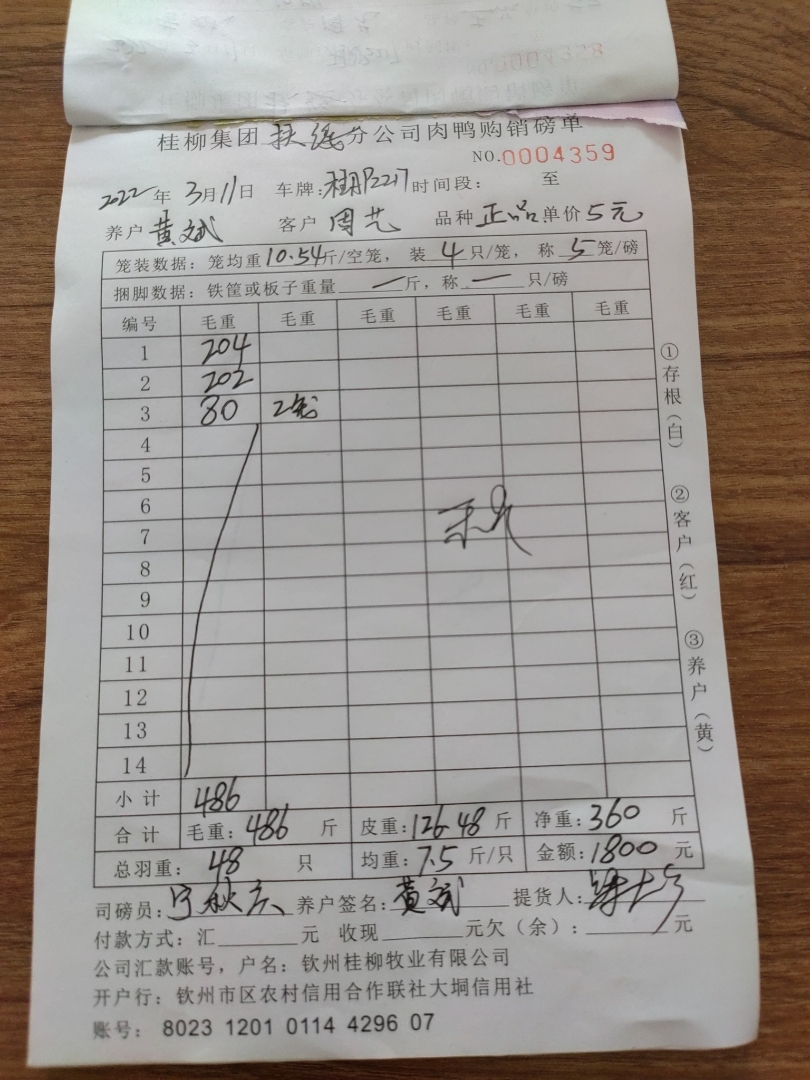 桂柳集团 扶绥 分公司肉鸭购销磅单
NO.0004359
2022年 3月11日 车牌: 时间段: 至
养户 黄斌 客户 周艺 品种 正品 单价 5元
笼装数据: 笼均重10.54斤/空笼, 装 4 只/笼, 称 5 笼/磅
捆脚数据: 铁筐或板子重量 — 斤, 称 — 只/磅
编号 毛重 毛重 毛重 毛重 毛重 毛重
1 204
2 202
3 80 2笼
4
5
6
7
8
9
10
11
12
13
14
小计 486
合计 毛重: 486 斤 皮重: 126.48 斤 净重: 360 斤
总羽重: 48 只 均重: 7.5 斤/只 金额: 1800 元
司磅员: 宁秋 养户签名: 黄斌 提货人:
付款方式: 汇 元 收现 元欠(余): 元
公司汇款账号, 户名: 钦州桂柳牧业有限公司
开户行: 钦州市区农村信用合作联社大垌信用社
账号: 8023 1201 0114 4296 07
①存根(白)
②客户(红)
③养户(黄)